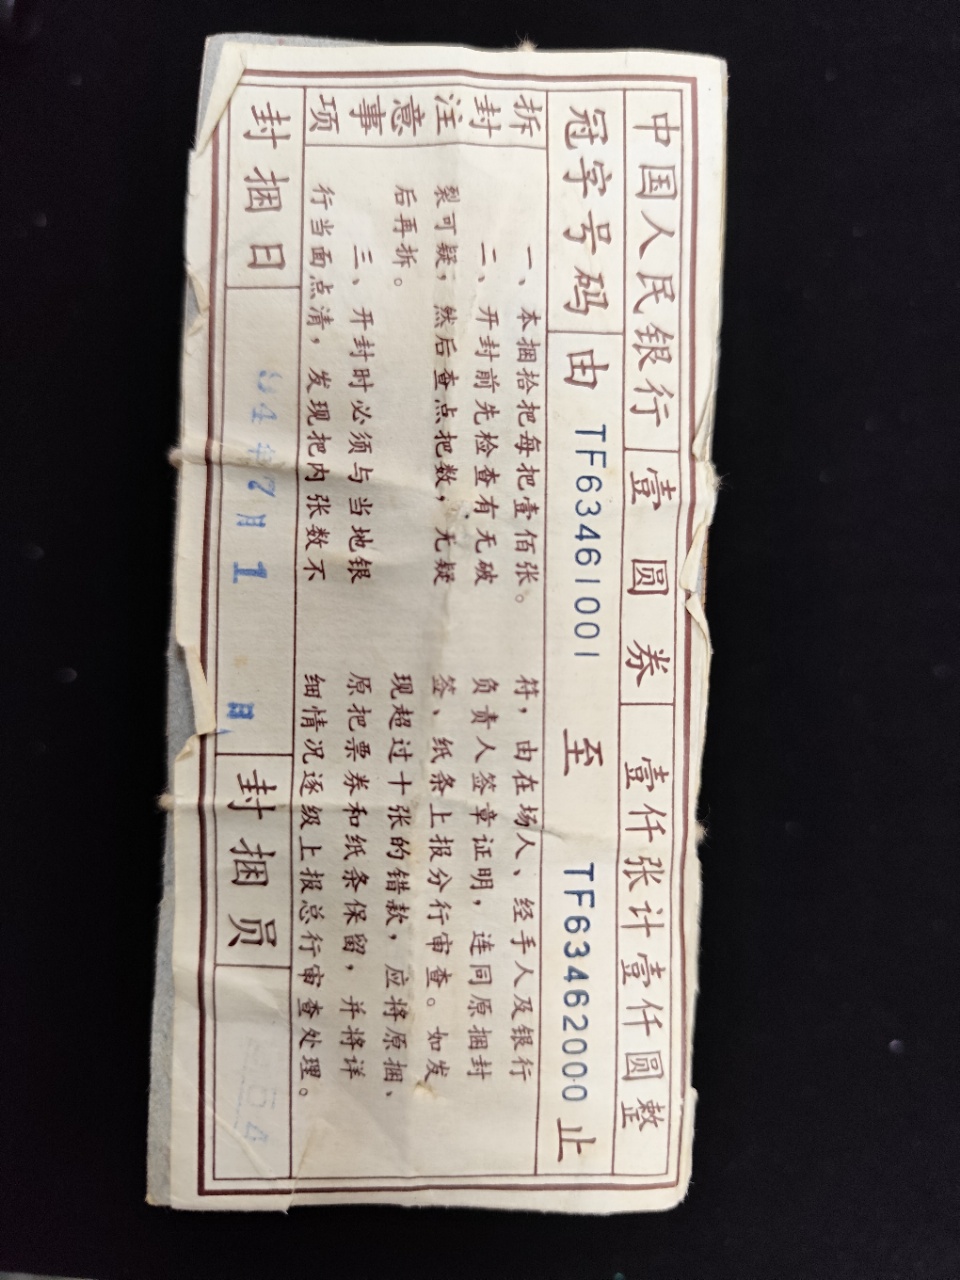 中国人民银行 壹圆券 壹仟张计壹仟圆整
冠字号码 由 TF63461001 至 TF63462000 止
拆封注意事项
一、本捆拾把每把壹佰张。
二、开封前先检查有无破
裂可疑，然后查点把数，无疑
后再拆。
三、开封时必须与当地银
行当面点清，发现把内张数不
符，由在场人、经手人及银行
负责人签章证明，连同原捆封
签、纸条上报分行审查。如发
现超过十张的错款，应将原捆、
原把票券和纸条保留，并将详
细情况逐级上报总行审查处理。
封捆日 94年7月1日 封捆员